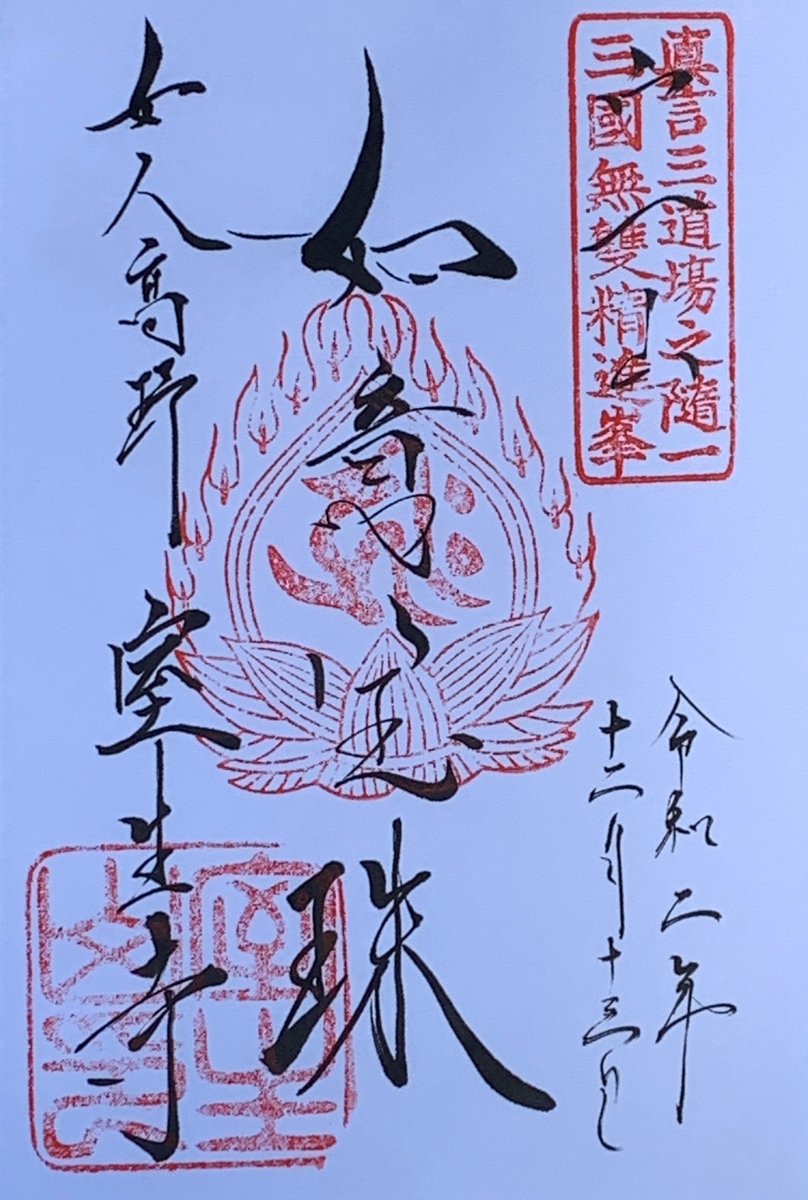 眞言三道場之隨一
三國無雙精進峯
令和二年
十二月十三日
如意宝珠
女人高野 室生寺